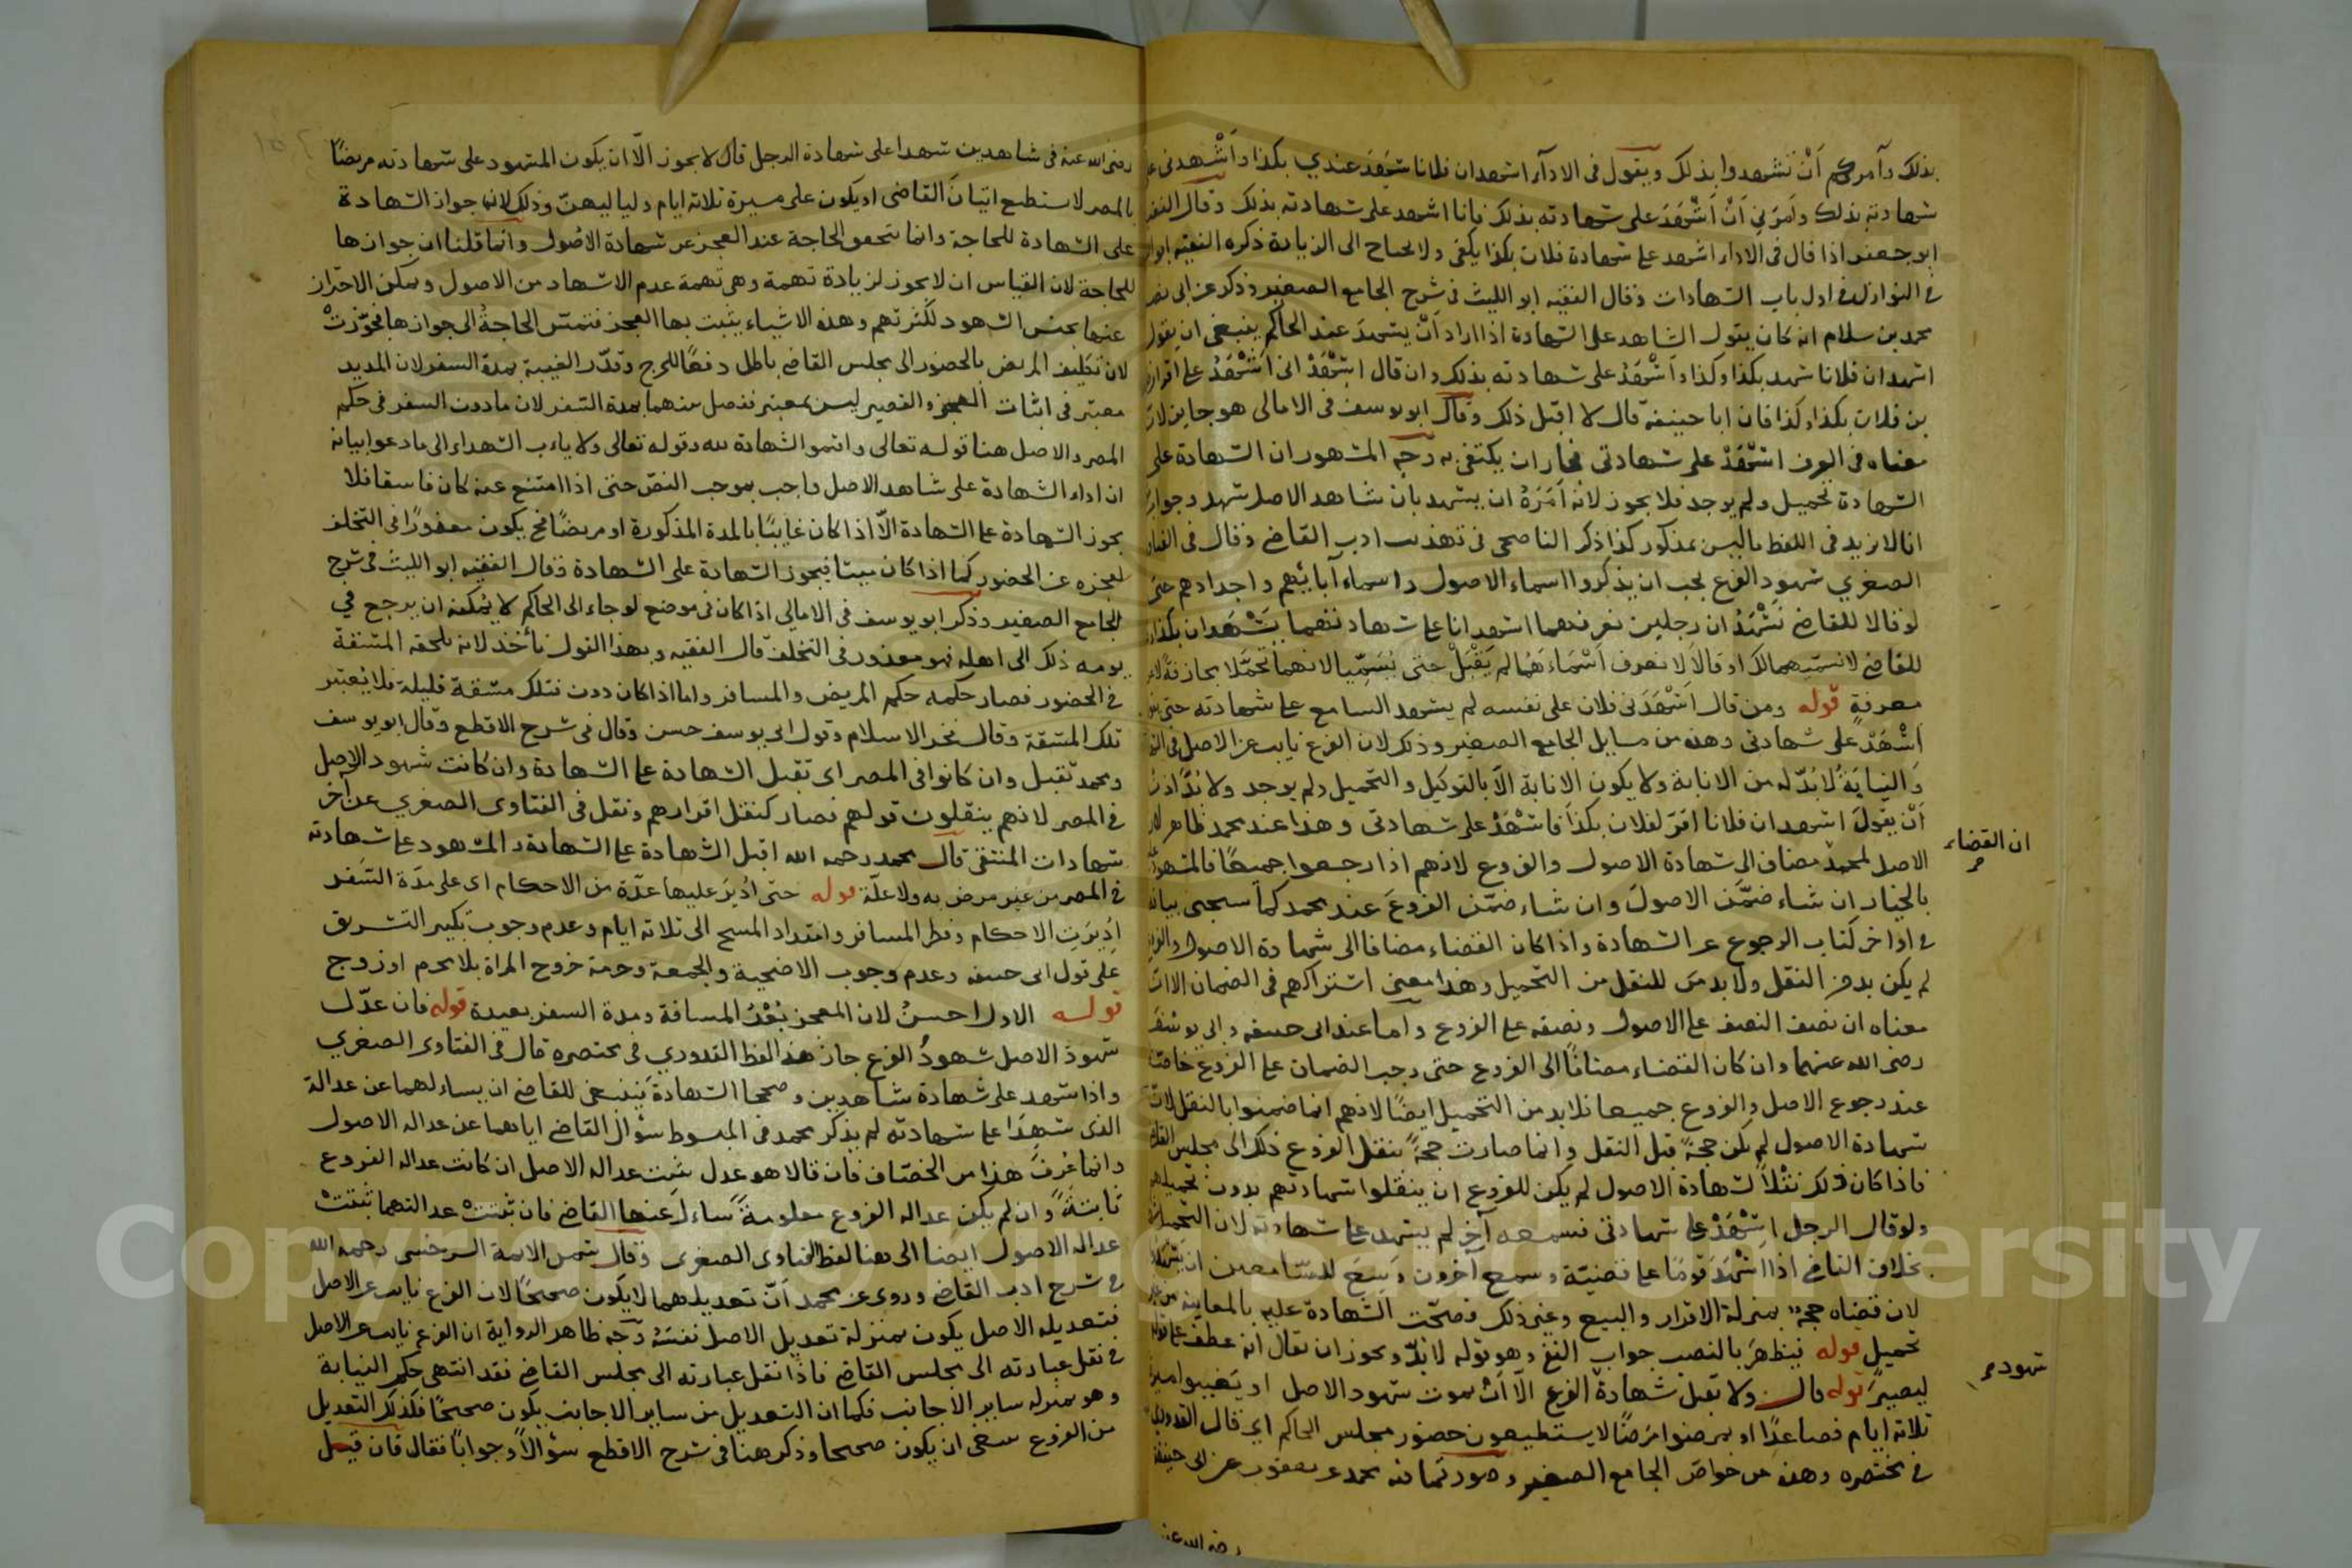 بذلك وآمركم أَنْ تشهدوا بذلك ويقول في الادآء اشهد ان فلانا شَهِدَ عندي بكذا وأَشْهدني على
شهادته بذلك وامَرَني اَنْ اَشْهَدَ على شهادته بذلك فانا اشهد على شهادته بذلك وقال الفقيه
ابو جعفر اذا قال في الاداء اشهد على شهادة فلان بكذا يكفي ولا يحتاج الى الزيادة ذكره الفقيه ابو
في النوازل في اول باب الشهادات وقال الفقيه ابو الليث في شرح الجامع الصغير وذكر عن ابي نصر
محمد بن سلام انه كان يقول الشاهد على الشهادة اذا اراد اَنْ يشهدَ عند الحاكم ينبغي ان يقول
اشهد ان فلانا شهد بكذا وكذا وأَشْهَدُ على شهادته بذلك وان قال اشْهَدْ اني اَشْهَدُ على اقرار
بن فلان بكذا وكذا فان ابا حنيفة قال لا اقبل ذلك وقال ابو يوسف في الامالي هو جايز لان
معناه في العرف اشْهَدْ على شهادتي فجاز ان يكتفي به وجه المشهور ان الشهادة على
الشهادة تحميل ولم يوجد فلا يجوز لانه اَمَرَهُ ان يشهد بان شاهد الاصل شهد وجوابه
انا لا نزيد في اللفظ ما ليس بمذكور كذا ذكر الناصحي في تهذيب ادب القاضي وقال في الفتاوى
الصغرى شهود الفرع يجب ان يذكروا اسماء الاصول واسماء آبائهم واجدادهم حتى
لو قالا للقاضي نَشْهَدُ ان رجلين نعرفهما اشهدانا على شهادتهما يَشْهَدان بكذا
للقاضي لا نسمّيهما لك او قالا لا نعرف اَسْمَاءَهُما لم يَقْبَلْ حتى يُسَمِّيا لانهما تحمَّلا مجازفةً لا عن
معرفةٍ قوله ومن قال اَشْهَدَني فلان على نفسه لم يشهد السامع على شهادته حتى يقول
اَشْهَدْ على شهادتي وهذه من مسايل الجامع الصغير وذلك لان الفرع نايب عن الاصل في
وَالنيابَةُ لا بُدّ له من الانابة ولا يكون الانابة الاّ بالتوكيل والتحميل ولم يوجد ولا بُدَّ
اَنْ يقولَ اشهد ان فلانا اقرّ لفلان بكذَا فاشْهَدْ على شهادتي وهذا عند محمد ظاهر لان
الاصل لمحمد مضاف الى شهادة الاصول والفروع لانهم اذا رجعوا جميعًا فالمشهود
بالخيار ان شاء ضمَّن الاصولَ وان شاء ضمّن الفروعَ عند محمد كما سيجيء بيانه
في اواخر كتاب الرجوع عن الشهادة واذا كان القضاء مضافا الى شهادة الاصول والفروع
لم يكن بد من النقل ولا بد من للنقل من التحميل وهذا معنى اشتراكهم في الضمان الا ان
معناه ان نصف النصف على الاصول ونصفه على الفروع واما عند ابي حنيفه وابي يوسف
رضي الله عنهما وان كان القضاء مضافًا الى الفروع حتى وجب الضمان على الفروع خاصة
عند رجوع الاصل والفروع جميعا فلا بد من التحميل ايضًا لانهم انما ضمنوا بالنقل لان
شهادة الاصول لم تكن حجةً قبل النقل وانما صارت حجةً بنقل الفروع ذلك الى مجلس القضاء
فاذا كان ذلك نقْلاً لشهادة الاصول لم يكن للفروع ان ينقلوا شهادتهم بدون تحميلهم
ولو قال الرجل اشْهَدْ على شهادتي فسمعه آخر لم يشهد على شهادته لان التحميل
بخلاف القاضي اذا اَشْهَدَ قومًا على قضيّته وسمع آخرون وَسِعَ للسّامعين ان يشهدوا
لان قضاه حجة بمنزلة الاقرار والبيع وغير ذلك فصحّت الشهادة عليه بالمعاينة من غير
تحميل قوله فيظهرَ بالنصب جواب النفي وهو قوله لا بدّ ويجوز ان يقال انه عطف على قوله
ليصيرَ قوله قال ولا تقبل شهادة الفرع الاّ اَنْ يموت شهود الاصل او يَغيبوا مسيرة
ثلاثة ايام فصاعدًا او يمرضوا مَرَضًا لا يستطيعون حضور مجلس الحاكم اي قال القدوري
في مختصره وهذه من خواصّ الجامع الصغير وصورتها فيه محمد عن يعقوب عن ابي حنيفة
رضي الله عنه
ان القضاء
شهود
رضي الله عنه في شاهدين شهدا على شهادة الرجل قال لا يجوز الاّ ان يكون المشهود على شهادته مريضًا
بالمصر لا يستطيع اتيانَ القاضي او يكون على مسيرة ثلاثة ايام ولياليهنّ وذلك لان جواز الشهادة
على الشهادة للحاجة وانما يتحقق الحاجة عند العجز عن شهادة الاصول وانما قلنا ان جوازها
للحاجة لان القياس ان لا يجوز لزيادة تهمة وهي تهمة عدم الاشهاد من الاصول ويمكن الاحتراز
عنها بجنس الشهود لكثرتهم وهذه الاشياء يثبت بها العجز فتمسّ الحاجةُ الى جوازها فجُوّزتْ
لان تكليف المريض بالحضور الى مجلس القاضي باطل دفعًا للحرج وقدّر الغيبة بمدة السفر لان المديد
معتبر في اثبات العجز والقصير ليس بمعتبر ففصل بينهما بمدة السفر لان ما دون السفر في حكم
المصر والاصل هنا قوله تعالى واقيموا الشهادة لله وقوله تعالى ولا ياب الشهداء اذا ما دعوا بيانه
ان اداء الشهادة على شاهد الاصل واجب بموجب النصّ حتى اذا امتنع عنه كان فاسقا فلا
يجوز الشهادة على الشهادة الاّ اذا كان غايبًا بالمدة المذكورة او مريضًا فح يكون معذورًا في التخلف
لعجزه عن الحضور كما اذا كان ميتا فيجوز الشهادة على الشهادة وقال الفقيه ابو الليث في شرح
الجامع الصغير وذكر ابو يوسف في الامالي اذا كان في موضع لو جاء الى الحاكم لا يُمكنه ان يرجع في
يومه ذلك الى اهله فهو معذور في التخلف قال الفقيه وبهذا القول نأخذ لانه يلحقه المشقة
في الحضور فصار حكمه حكم المريض والمسافر واما اذا كان دون فتلك مشقة قليلة فلا يُعتبر
تلك المشقة وقال فخر الاسلام وقول ابي يوسف حسن وقال في شرح الاقطع وقال ابو يوسف
ومحمد تقبل وان كانوا في المصر اي تقبل الشهادة على الشهادة وان كانت شهود الاصل
في المصر لانهم ينقلون قولهم فصار كنقل اقرارهم ونقل في الفتاوى الصغرى عن آخر
شهادات المنتقى قال محمد رحمه الله اقبل الشهادة على الشهادة والمشهود على شهادته
في المصر من غير مرض به ولا علّة قوله حتى اُدْيرَ عليها عدّة من الاحكام اي على مدّة السَفر
اُدْيرَت الاحكام وفطر المسافر وامتداد المسح الى ثلاثة ايام وعدم وجوب تكبير التشريق
على قول ابي حنيفه وعدم وجوب الاضحية والجمعة وحرمة خروج المراة بلا محرم او زوج
قوله الاول احسنُ لان المعجز بُعْدُ المسافة ومدة السفر بعيدة قوله فان عدّل
شهودَ الاصل شهودُ الفرع جاز هذا لفظ القدوري في مختصره قال في الفتاوى الصغرى
واذا شهد على شهادة شاهدين وصححا الشهادة ينبغي للقاضي ان يساءلهما عن عدالة
الذي شهدَا على شهادته لم يذكر محمد في المبسوط سؤال القاضي اياهما عن عداله الاصول
وانما عُرِفَ هذا من الخصّاف فان قالا هو عدل ثبت عداله الاصل ان كانت عداله الفروع
ثابتةً وان لم يكن عداله الفروع معلومةً ساءلَ عنها القاضي فان ثبتتْ عدالتهما ثبتتْ
عداله الاصول ايضا الى هنا لفظ الفتاوى الصغرى وقال شمس الائمة السرخسي رحمه الله
في شرح ادب القاضي وروى عن محمد اَنّ تعديلهما لا يكون صحيحًا لان الفرع نايب عن الاصل
فتعديله الاصل يكون بمنزلة تعديل الاصل نفسَهُ وجه ظاهر الرواية ان الفرع نايب عن الاصل
في نقل عبارته الى مجلس القاضي فاذا نقل عبارته الى مجلس القاضي فقد انتهى حكم النيابة
وهو بمنزله ساير الاجانب فكما ان التعديل من ساير الاجانب يكون صحيحًا فكذلك التعديل
من الفروع ينبغي ان يكون صحيحا وذكر هنا في شرح الاقطع سؤالاً وجوابًا فقال فان قيل
Copyright © King Saud University